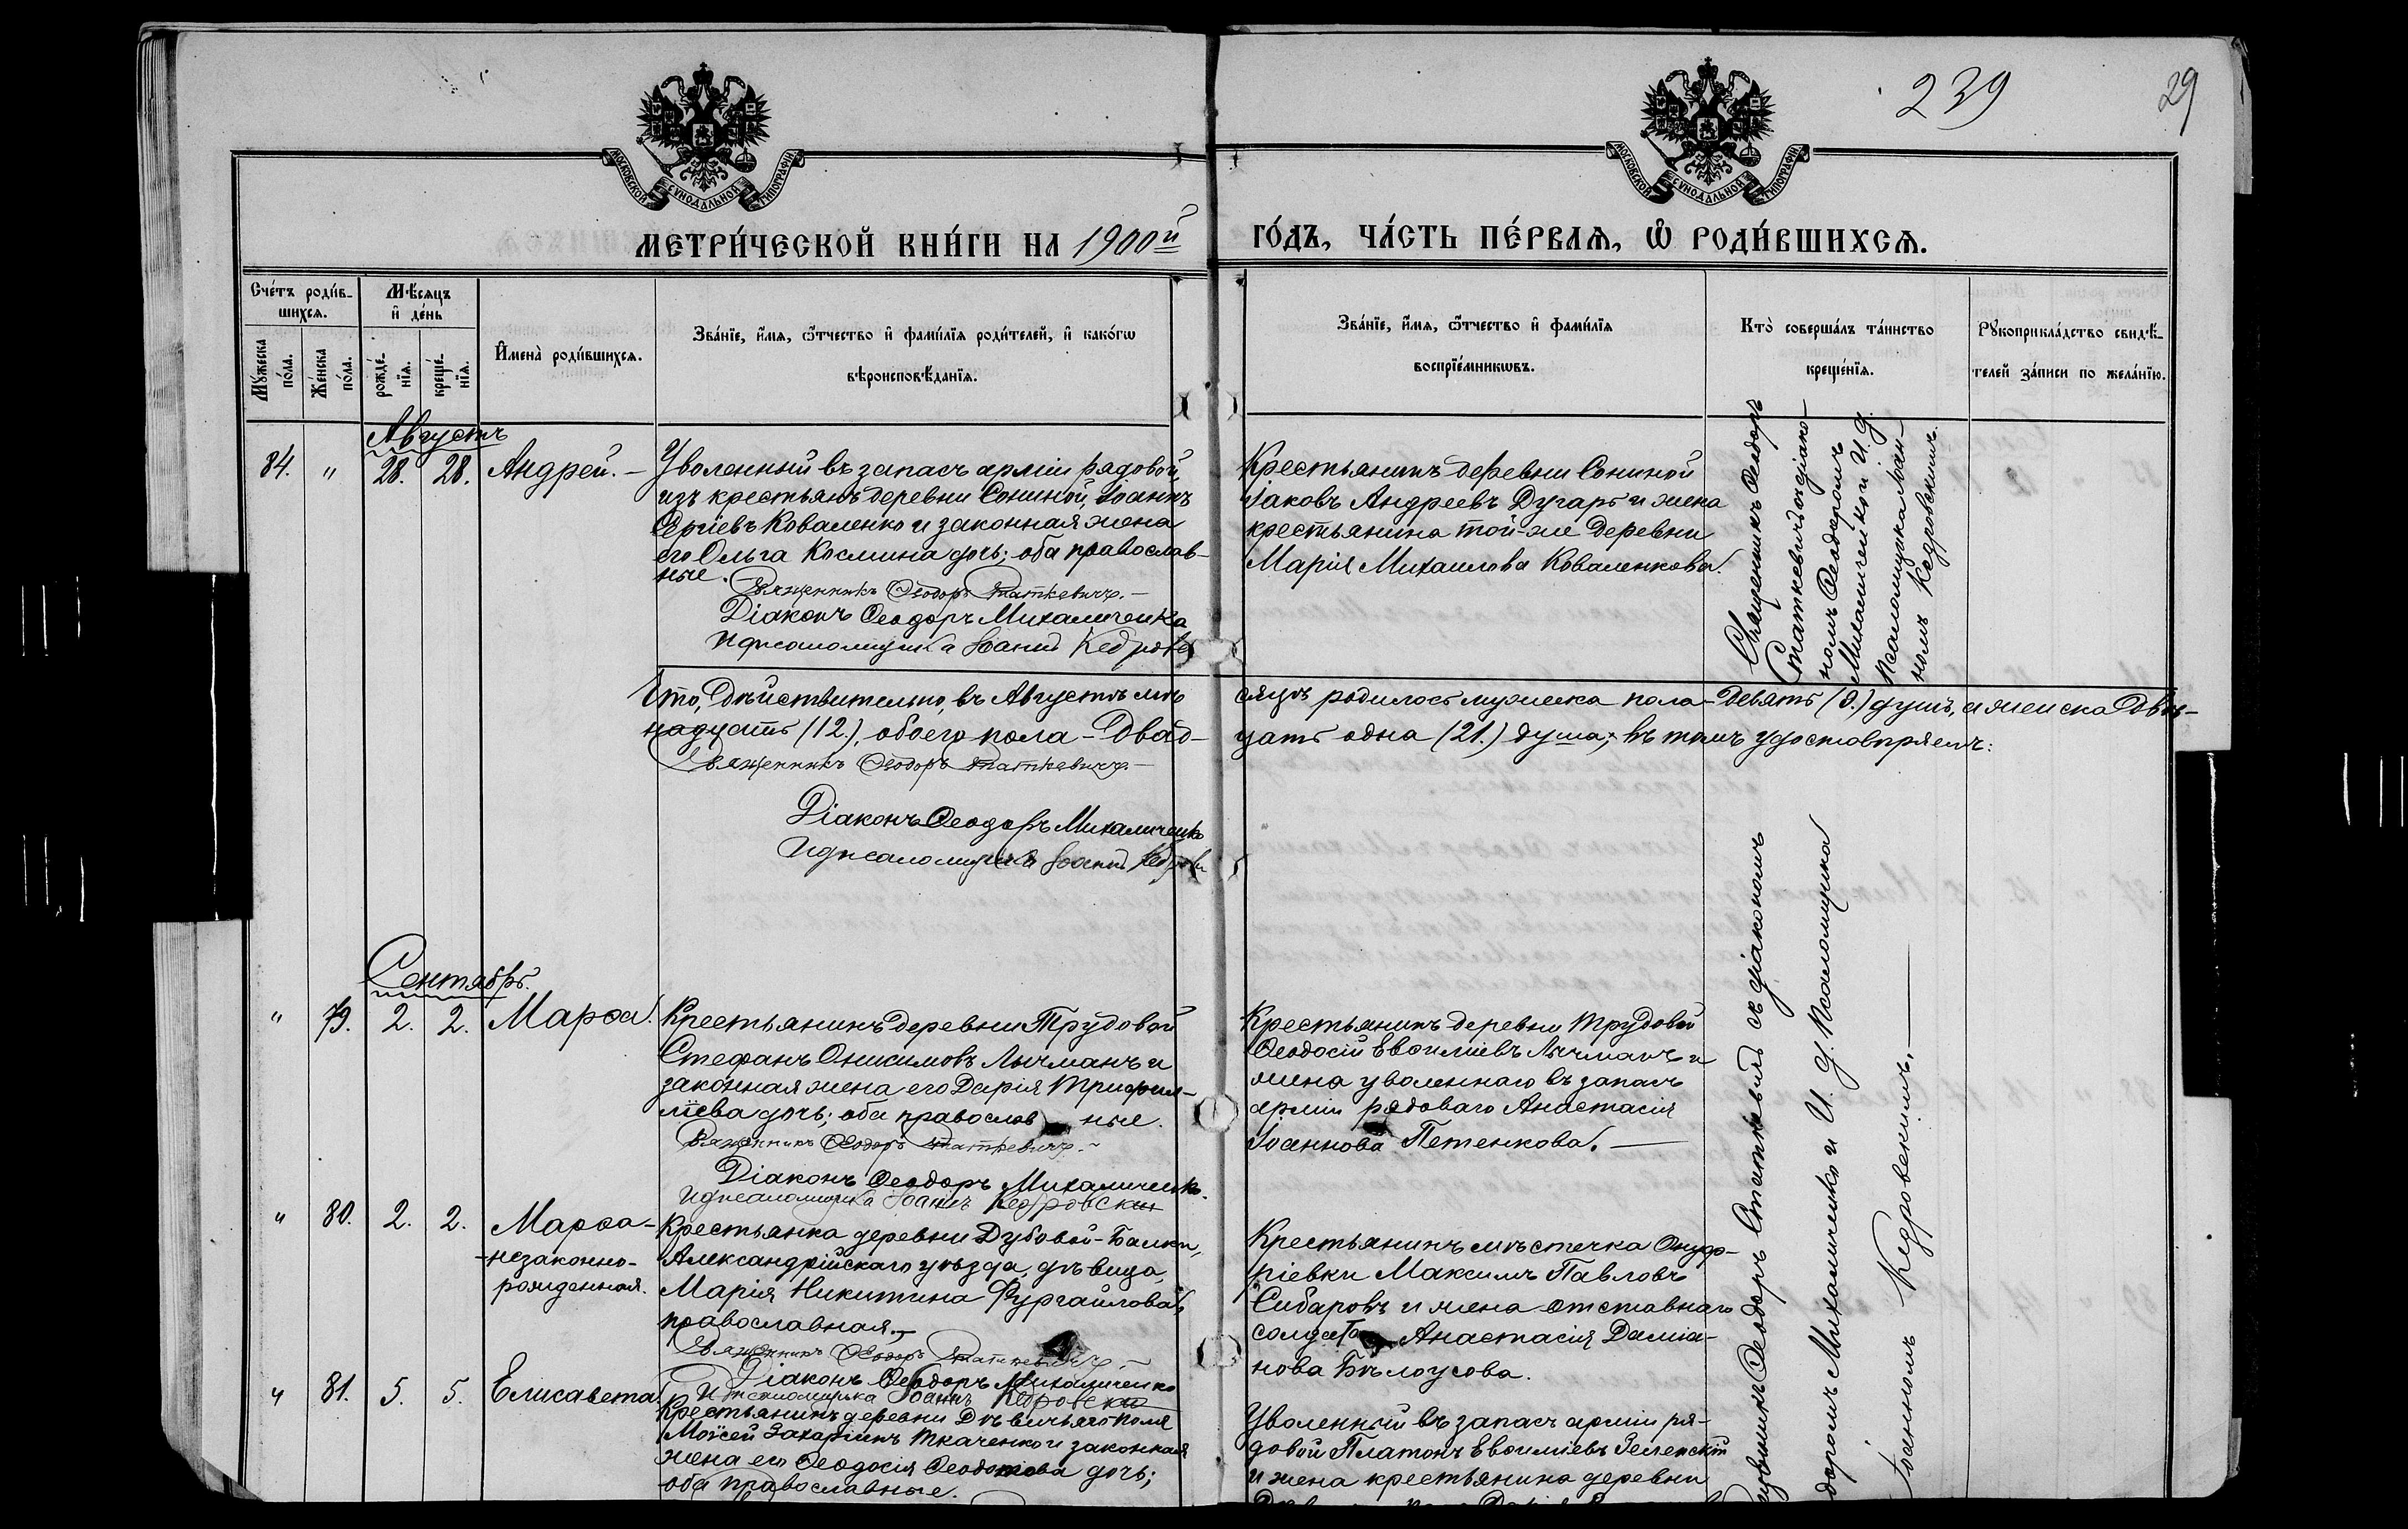 239
29
МОСКОВСКОЙ СѴНОДАЛЬНОЙ ТИПОГРАФІИ
МОСКОВСКОЙ СѴНОДАЛЬНОЙ ТИПОГРАФІИ
МЕТРИ́ЧЕСКОЙ КНИ́ГИ НА 1900й ГО́ДЪ, ЧА́СТЬ ПЕ́РВАѦ, Ѽ РОДИ́ВШИХСѦ.
Сче́тъ роди́в-
шихсѧ.
Мꙋ́жеска
по́ла.
Же́нска
по́ла.
Мѣ́сѧцъ
и҆ де́нь
рожде́-
нїѧ.
креще́-
нїѧ.
И҆мена̀ роди́вшихсѧ.
Зва́нїе, и҆́мѧ, ѻ҆́тчество и҆ фами́лїѧ роди́телей, и҆ како́гѡ
вѣроисповѣ́данїѧ.
Зва́нїе, и҆́мѧ, ѻ҆́тчество и҆ фами́лїѧ
воспрїе́мникѡвъ.
Кто̀ соверша́лъ та́инство
креще́нїѧ.
Рꙋкоприкла́дство свидѣ́-
телей за́писи по жела́нїю.
Августъ
84. " 28. 28. Андрей. –
Уволенный въ запасъ арміи рядовой,
изъ крестьянъ деревни Сониной, Іоаннъ
Сергіевъ Коваленко и законная жена
его Ольга Космина дочь; оба православ-
ные.
Священникъ Ѳеодоръ Статкевичъ. –
Діаконъ Ѳеодоръ Михаличенко
И д псаломщика Іоаннъ Кедровск
Крестьянинъ деревни Сониной
Іаковъ Андреевъ Дугарь и жена
крестьянина той-же деревни
Марія Михаилова Коваленкова.
Священникъ Ѳеодоръ
Статкевичъ съ діако-
номъ Ѳеодоромъ
Михаличенко и И. д.
псаломщика Іоан-
номъ Кедровскимъ.
Что, дѣйствительно, въ Августѣ мѣ-сяцѣ родилось мужеска пола – девять (9.) душъ, а женска двѣ-
надцать (12.), обоего пола – двад-цать одна (21.) душа; въ томъ удостовѣряемъ:
Священникъ Ѳеодоръ Статкевичъ. –
Діаконъ Ѳеодоръ Михаличенко
И д псаломщика Іоаннъ Кедровск
Сентябрь.
" 79. 2. 2. Марѳа.
Крестьянинъ деревни Трудовой
Стефанъ Онисимовъ Лычманъ и
законная жена его Дарія Трифил-
ліева дочь; оба православ ные.
Священникъ Ѳеодоръ Статкевичъ. –
Діаконъ Ѳеодоръ Михаличенко.
И д псаломщика Іоаннъ Кедровскій
Крестьянинъ деревни Трудовой
Ѳеодосій Евѳиміевъ Лычманъ и
жена уволеннаго въ запасъ
арміи рядоваго Анастасія
Іоаннова Петенкова. –
" 80. 2. 2. Марѳа –
–незаконно-
рожденная.
Крестьянка деревни Дубовой-Балки,
Александрійскаго уѣзда, дѣвица,
Марія Никитина Фургайлова,
православная. –
Священникъ Ѳеодоръ Статкевичъ. –
Діаконъ Ѳеодоръ Михаличенко
И д псаломщика Іоаннъ Кедровскій
Крестьянинъ мѣстечка Онуф-
ріевки Максимъ Павловъ
Сибаровъ и жена отставнаго
солдата Анастасія Даміа-
нова Бѣлоусова.
" 81. 5. 5. Елисавета.
Крестьянинъ деревни Дѣвичьяго Поля
Моѵсей Захаріинъ Ткаченко и законная
жена его Ѳеодосія Ѳеодотова дочь;
оба православные.
Уволенный въ запасъ арміи ря-
довой Платонъ Евѳиміевъ Зеленскій
и жена крестьянина деревни
Ѳеодоръ Статкевичъ съ діакономъ
Михаличенко и И. д. псаломщика
Іоанномъ Кедровскимъ. –